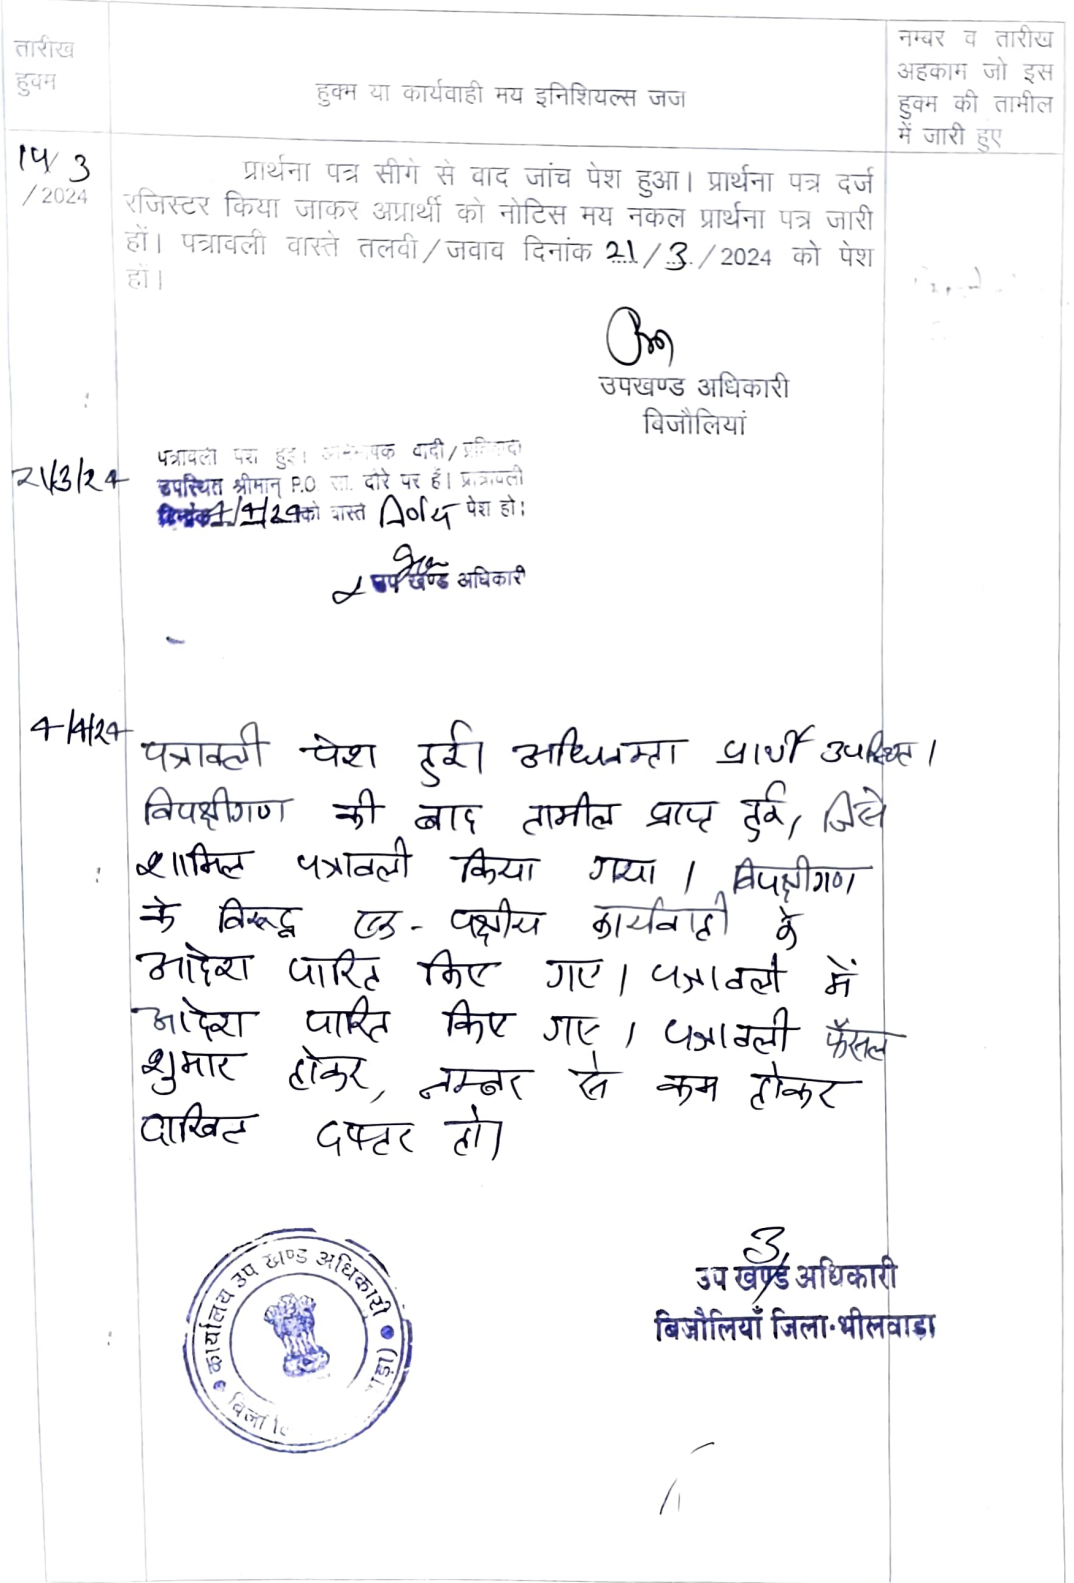 तारीख
हुक्म
हुक्म या कार्यवाही मय इनिशियल्स जज
नम्बर व तारीख
अहकाम जो इस
हुक्म की तामील
में जारी हुए
14/3
/2024
प्रार्थना पत्र सीगे से वाद जांच पेश हुआ। प्रार्थना पत्र दर्ज
रजिस्टर किया जाकर अप्रार्थी को नोटिस मय नकल प्रार्थना पत्र जारी
हों। पत्रावली वास्ते तलवी/जवाव दिनांक 21/3/2024 को पेश
हों।
उपखण्ड अधिकारी
बिजौलियां
21/3/24
पत्रावली पेश हुई। वादी/
उपस्थित श्रीमान् P.O सा. दौरे पर हैं।
दिनांक 4/4/24 को वास्ते पेश हो।
उप खण्ड अधिकारी
4/4/24
पत्रावली पेश हुई। अधिवक्ता प्रार्थी उपस्थित।
विपक्षीगण की बाद तामील प्राप्त हुई, जिसे
शामिल पत्रावली किया गया। विपक्षीगण
के विरूद्ध एक-पक्षीय कार्यवाही के
आदेश पारित किए गए। पत्रावली में
आदेश पारित किए गए। पत्रावली फैसल
शुमार होकर, नम्बर से कम होकर
दाखिल दफ्तर हो।
कार्यालय उप खण्ड अधिकारी
उप खण्ड अधिकारी
बिजौलियाँ जिला-भीलवाडा